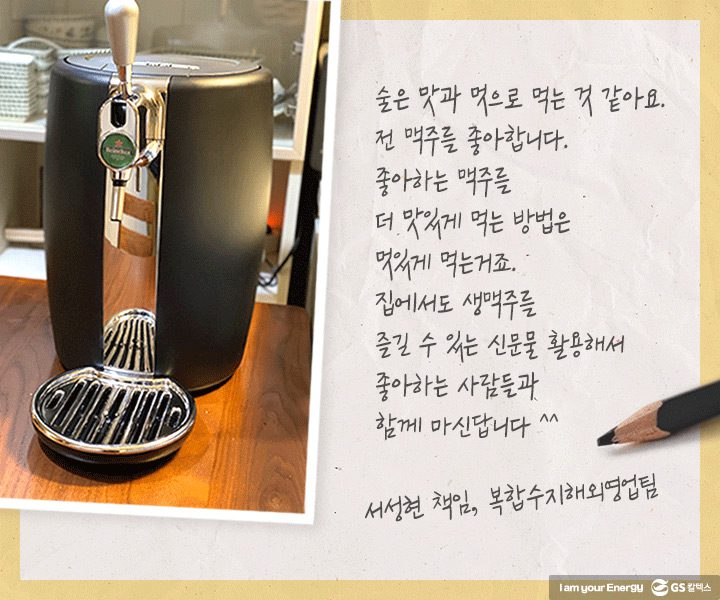 Heineken
술은 맛과 멋으로 먹는 것 같아요.
전 맥주를 좋아합니다.
좋아하는 맥주를
더 맛있게 먹는 방법은
멋있게 먹는거죠.
집에서도 생맥주를
즐길 수 있는 신문물 활용해서
좋아하는 사람들과
함께 마신답니다 ^^
서성현 책임, 복합수지해외영업팀
I am your Energy GS칼텍스